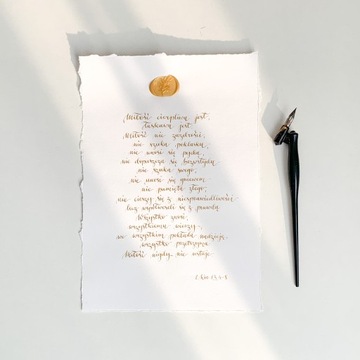 „Miłość cierpliwa jest,
łaskawa jest.
Miłość nie zazdrości,
nie szuka poklasku,
nie unosi się pychą,
nie dopuszcza się bezwstydu,
nie szuka swego,
nie unosi się gniewem,
nie pamięta złego,
nie cieszy się z niesprawiedliwości,
lecz współweseli się z prawdą.
Wszystko znosi,
wszystkiemu wierzy,
we wszystkim pokłada nadzieję,
wszystko przetrzyma.
Miłość nigdy nie ustaje
1 Kor 13, 4-8